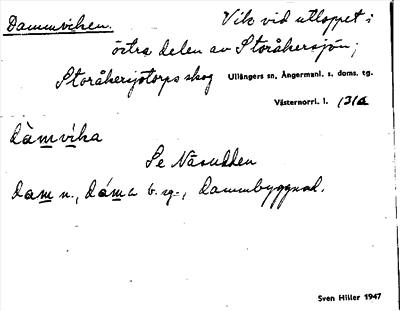 Dammviken. Vik vid utloppet i
östra delen av Storåkersjön;
Storåkersjötorps skog Ullångers sn, Ångermanl. s. doms. tg.
Västernorrl. l. 1316
dàmvika
Se Näsudden
dam n., dáma b. sg., dammbyggnad.
Sven Hiller 1947